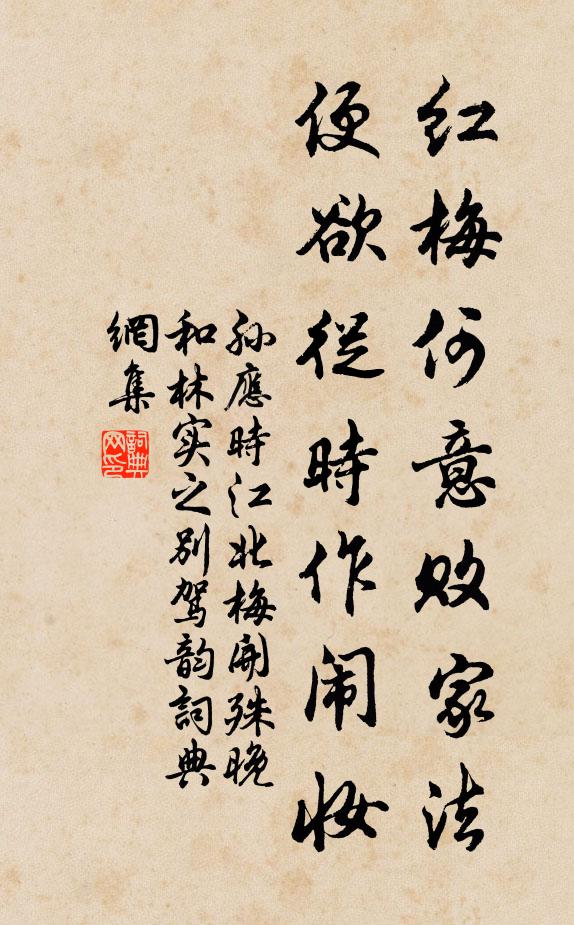 红梅何意败家法
便欲從時作闹妆
孙應時江北梅開殊晚
和林实之别駕韵詞典
網集
詞典网印